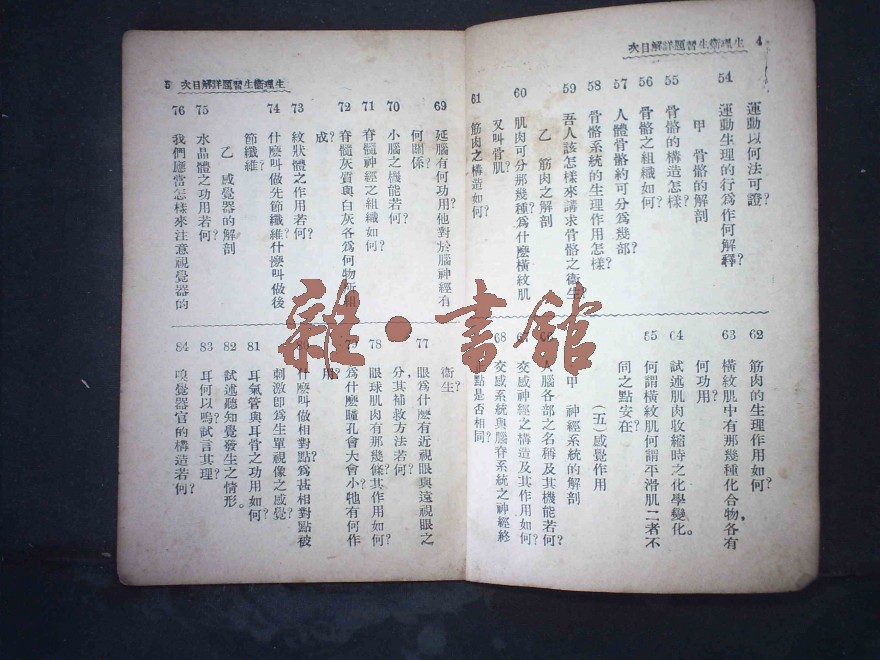 生理衞生習題詳解目次 4
運動以何法可證?
54 運動生理的行為作何解釋?
甲 骨骼的解剖
55 骨骼的構造怎樣?
56 骨骼之組織如何?
57 人體骨骼約可分為幾部?
58 骨骼系統的生理作用怎樣?
59 吾人該怎樣來講求骨骼之衞生?
乙 筋肉之解剖
60 肌肉可分那幾種為什麼橫紋肌
又叫骨肌?
61 筋肉之構造如何?
62 筋肉的生理作用如何?
63 橫紋肌中有那幾種化合物,各有
何功用?
64 試述肌肉收縮時之化學變化。
65 何謂橫紋肌何謂平滑肌二者不
同之點安在?
(五)感覺作用
甲 神經系統的解剖
66 人腦各部之名稱及其機能若何?
67 交感神經之構造及其作用如何?
68 交感系統與腦脊系統之神經終
止點是否相同?
生理衞生習題詳解目次 5
69 延腦有何功用他對於腦神經有
何關係?
70 小腦之機能若何?
71 脊髓神經之組織如何?
72 脊髓灰質與白灰各為何物所組
成?
73 紋狀體之作用若何?
74 什麼叫做先節纖維什麼叫做後
節纖維?
乙 感覺器的解剖
75 水晶體之功用若何?
76 我們應當怎樣來注意視覺器的
衞生?
77 眼為什麼有近視眼與遠視眼之
分,其補救方法若何?
78 眼球肌肉有那幾條其作用如何?
79 為什麼瞳孔會大會小牠有何作
用?
80 什麼叫做相對點為甚相對點被
刺激卽為生單視像之感覺?
81 耳氣管與耳骨之功用如何?
82 試述聽知覺發生之情形。
83 耳何以鳴試言其理?
84 嗅覺器官的構造若何?
雜·書館